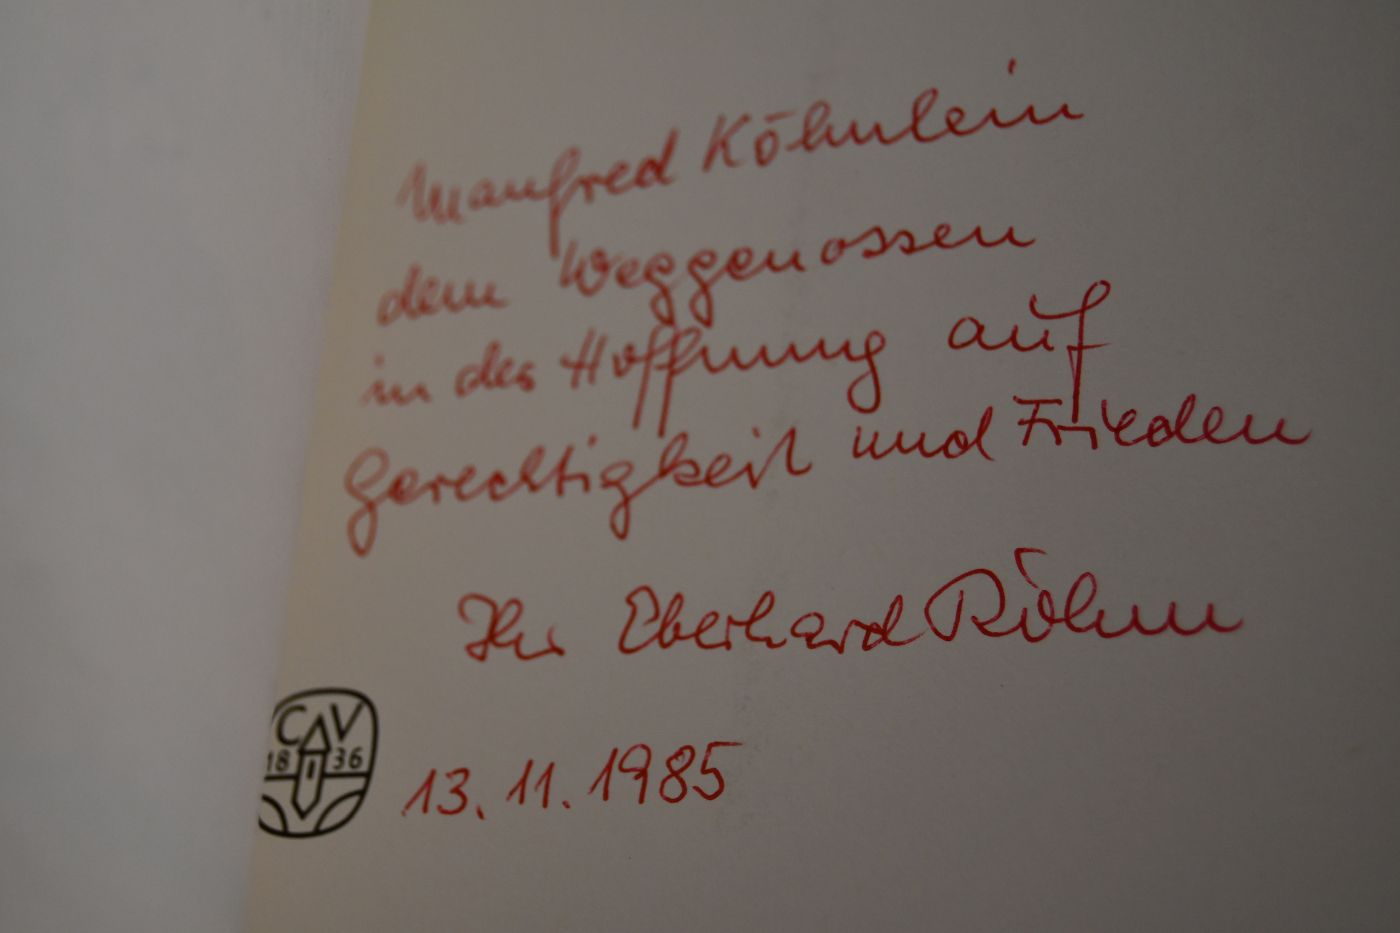 Manfred Köhnlein
dem Weggenossen
in der Hoffnung auf
Gerechtigkeit und Frieden
Ihr Eberhard Röhm
CAV
18 36
13. 11. 1985